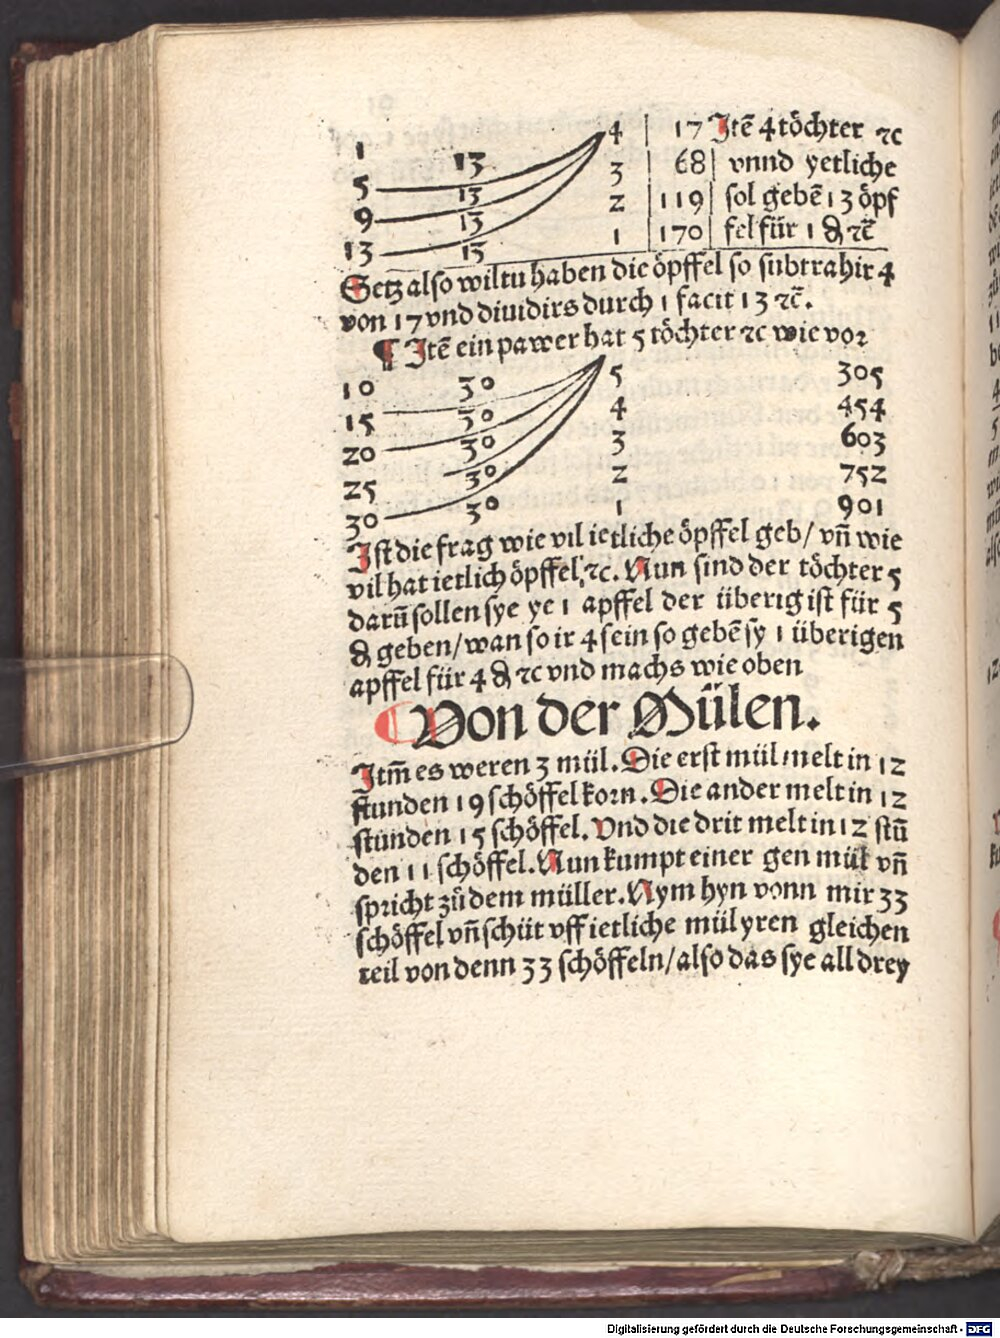 1 13 4 | 17 | Jtē 4 töchter ꝛc
5 13 3 | 68 | vnnd yetliche
9 13 2 | 119 | sol gebē 13 öpf
13 13 1 | 170 | fel für 1 ₰ ꝛc̄
Setz also wiltu haben die öpffel so subtrahir 4
von 17 vnd diuidirs durch 1 facit 13 ꝛc̄.
¶ Jtē ein pawer hat 5 töchter ꝛc wie vor
10 30 5 305
15 30 4 454
20 30 3 603
25 30 2 752
30 30 1 901
Jst die frag wie vil ietliche öpffel geb/ vn̄ wie
vil hat ietlich öpffel, ꝛc. Nun sind der töchter 5
darū sollen sye ye 1 apffel der überig ist für 5
₰ geben/wan so ir 4 sein so gebē sy 1 überigen
apffel für 4 ₰ ꝛc vnd machs wie oben
¶ Von der Mülen.
Jtm̄ es weren 3 mül. Die erst mül melt in 12
stunden 19 schöffel korn. Die ander melt in 12
stunden 15 schöffel. Vnd die drit melt in 12 stū
den 11 schöffel. Nun kumpt einer gen mül vn̄
spricht zů dem müller. Nym hyn vonn mir 33
schöffel vn̄ schüt vff ietliche mül yren gleichen
teil von denn 33 schöffeln/also das sye all drey
Digitalisierung gefördert durch die Deutsche Forschungsgemeinschaft - DFG